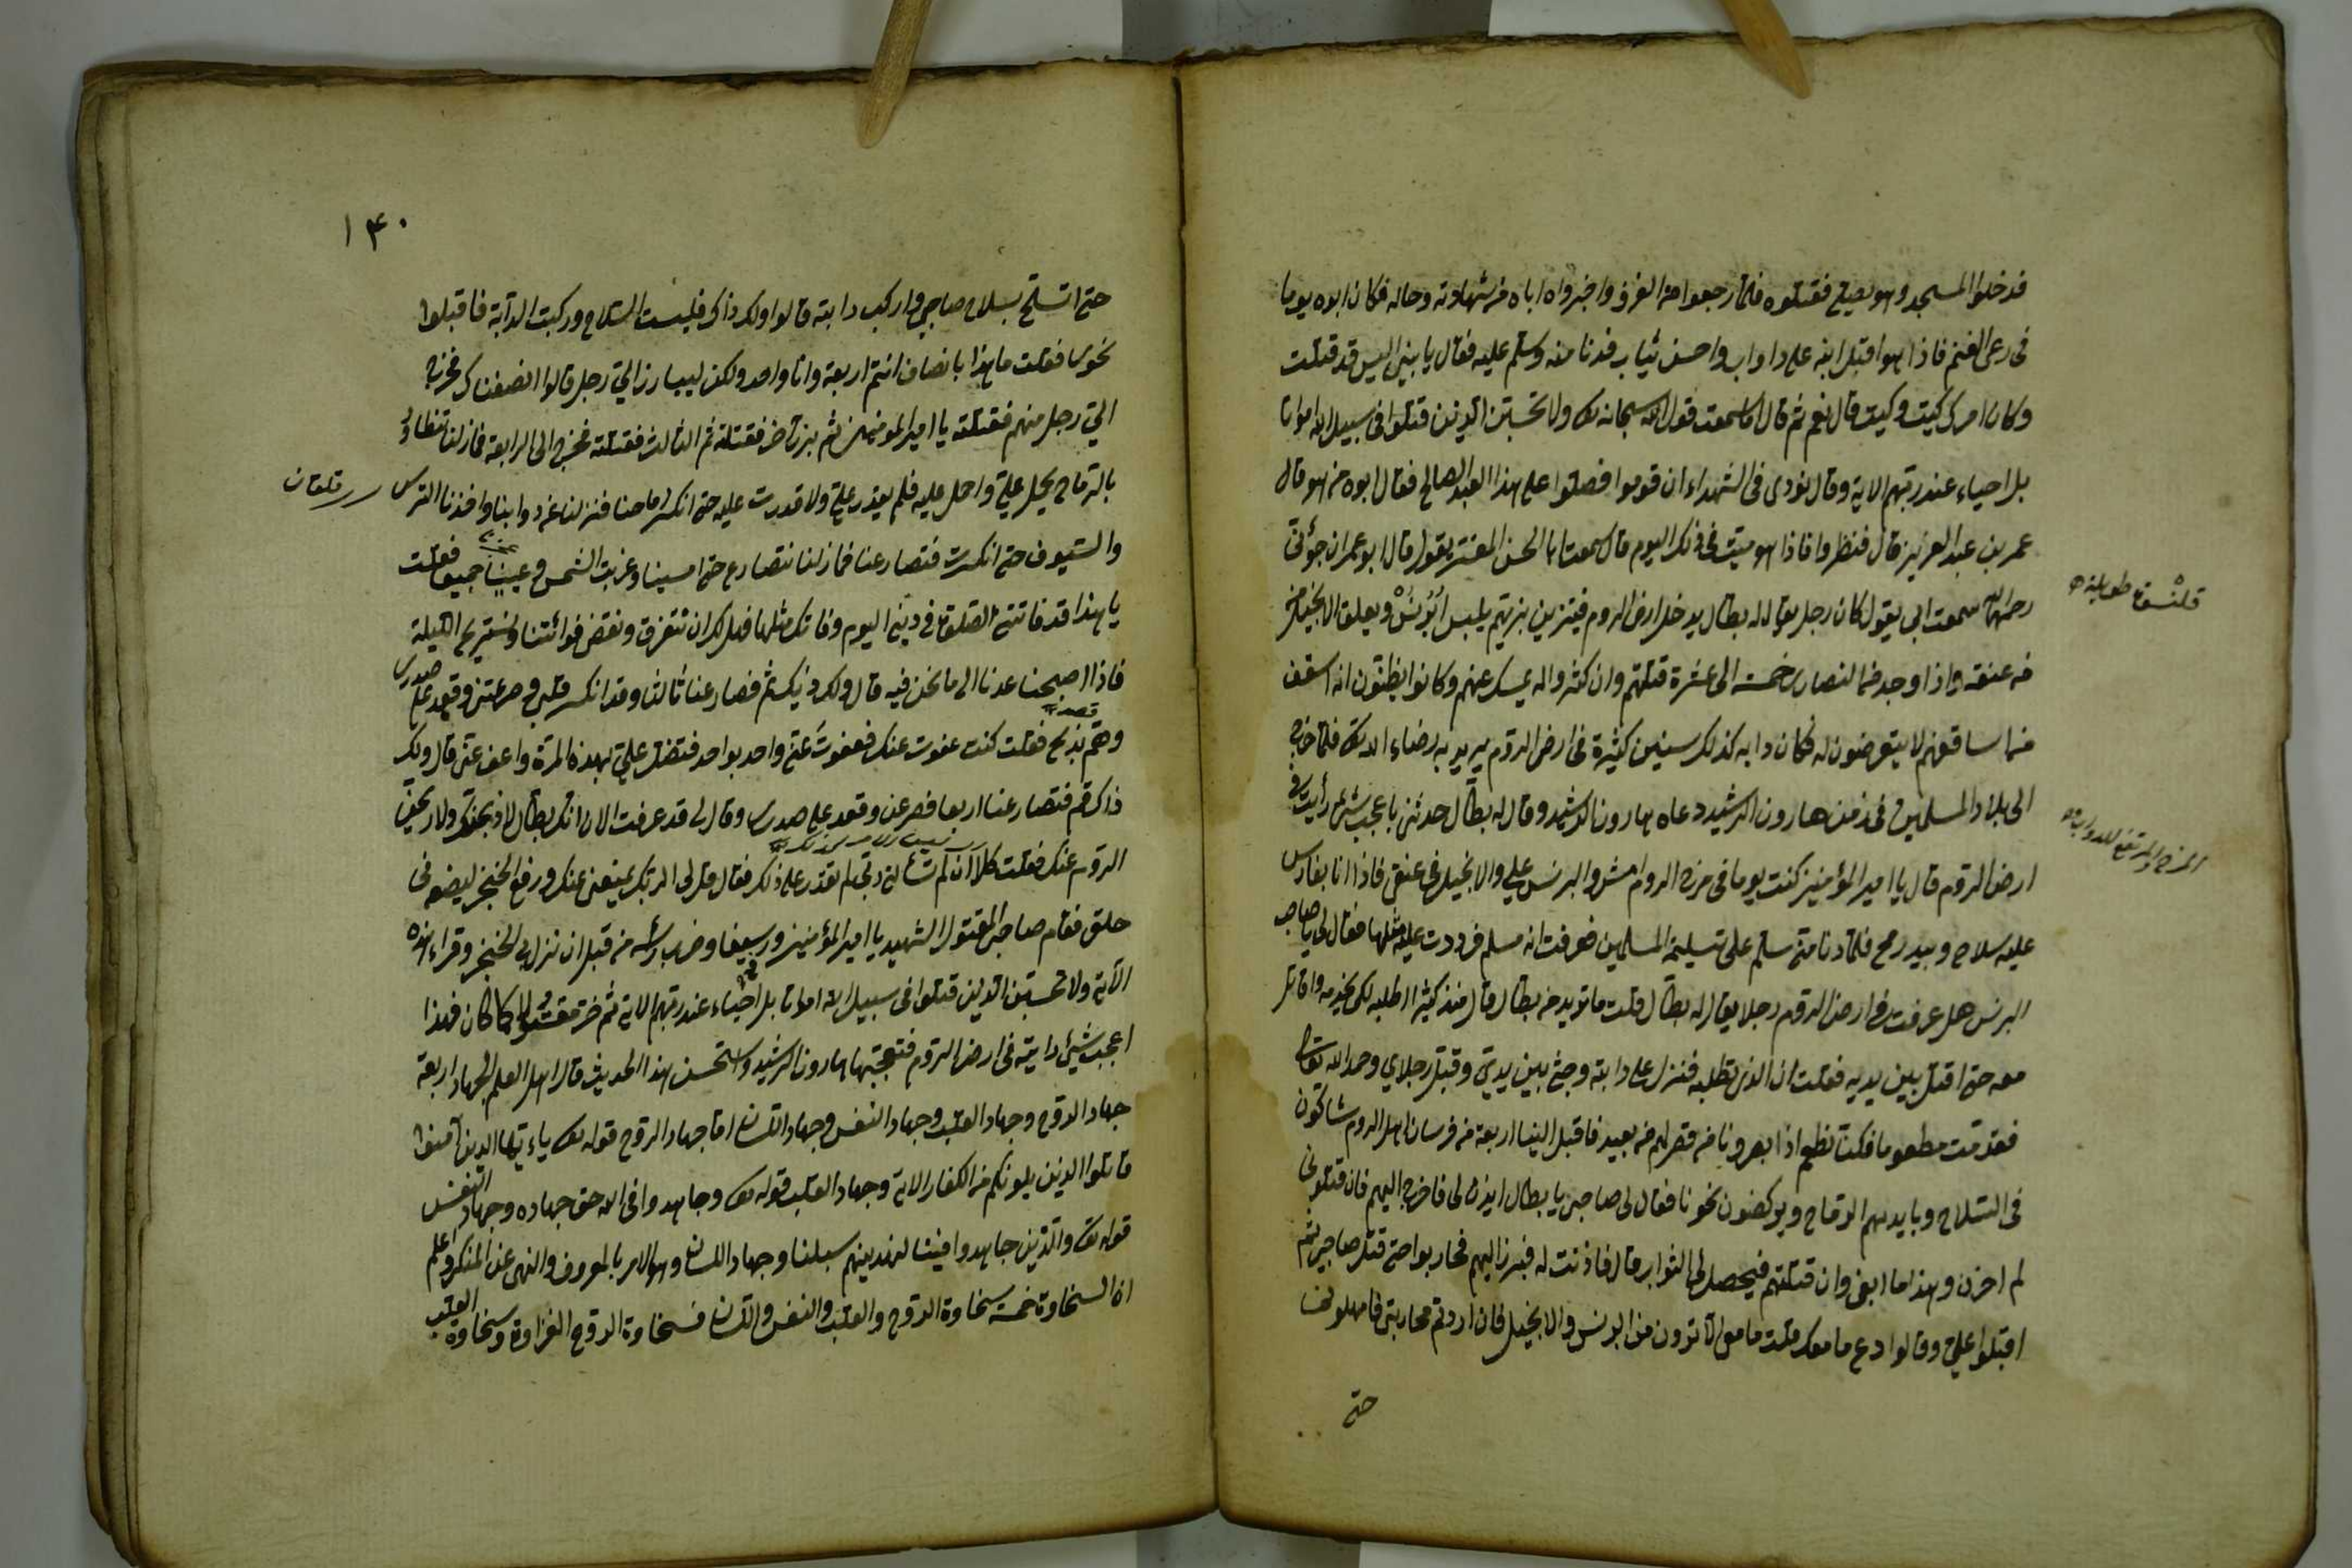 فدخلوا المسجد وهو يصلي فقتلوه فلما رجعوا من الغزو واخبروا اباه من شهادته وحاله فكان ابوه يوما
فى رعى الغنم فاذا هو اقبل ابنه على دواب واحسن ثياب فدنا منه وسلم عليه فقال يا بني اليس قد قتلت
وكان امرك كيت وكيت قال نعم ثم قال اما سمعت قول الله سبحانه ولا تحسبن الذين قتلوا فى سبيل الله امواتا
بل احياء عند ربهم الاية وقال نودى فى الشهداء ان قوموا فصلوا على هذا العبد الصالح فقال ابوه من هو قال
عمر بن عبد العزيز قال فنظروا فاذا هو ميت فى ذلك اليوم قال سمعت ابا الحسن يقول قال ابو عمران
رحمه الله سمعت ابى يقول كان رجل يقال له بطال يدخل ارض الروم فيتزين بزيهم يلبس البرنس ويعلق الانجيل
فى عنقه واذا وجد من النصارى خمسة الى عشرة قتلهم وان كثروا لم يمسك عنهم وكانوا يظنون انه اسقف
من اساقفهم لا يتعرضون له فكان دابه كذلك سنين كثيرة فى ارض الروم يريد به رضاء الله فلما خرج
الى بلاد المسلمين فى زمن هارون الرشيد دعاه هارون الرشيد وقال له بطال حدثنى باعجب شئ رأيت فى
ارض الروم قال يا امير المؤمنين كنت يوما فى مرج الروم امشى والبرنس على والانجيل فى عنقى فاذا انا بفارس
عليه سلاح وبيده رمح فلما دنا منى سلم على تسليم المسلمين فعرفت انه مسلم فرددت عليه مثلها فقال لى يا صاحب
البرنس هل عرفت فى ارض الروم رجلا يقال له بطال قلت ما تريد من بطال قال منذ كثير اطلبه لكى اخدمه واقاتل
معه حتى اقتل بين يديه فقلت انا الذى تطلبه فنزل على دابته وجثى بين يدى وقبل رجلاي وحمد الله تعالى
فقدمت مطعوما فكنا نطعم اذا بصرونا من قصر لهم من بعيد فاقبل الينا اربعة من فرسان اهل الروم شاكون
فى السلاح وبايديهم الرماح ويركضون نحونا فقال لى صاحبى يا بطال ايذن لى فاخرج اليهم فان قتلونى
لم احزن وهذا ما ابغى وان قتلتهم فيحصل لى الثواب قال فاذنت له فبرز اليهم فحاربوا حتى قتل صاحبى ثم
اقبلوا على وقالوا دع ما معك قلت ما معى الا ترون من البرنس والانجيل فان اردتم محاربتى فامهلونى
حتى
قلنسوة طويلة
المرج الموضع للدواب
١٤٠
حتى اتسلح بسلاح صاحبى واركب دابته قالوا ولك ذاك فلبست السلاح وركبت الدابة فاقبلوا
نحوى فقلت ما هذا بانصاف انتم اربعة وانا واحد ولكن ليبارز الى رجل قالوا انصفناك فخرج
الى رجل منهم فقتلته يا امير المؤمنين ثم برز اخر فقتلته ثم الثالث فقتلته فخرج الى الرابعة فما زلنا
بالرماح يحمل على واحمل عليه فلم يقدر على ولا قدرت عليه حتى انكسر رماحنا فنزلنا عن دوابنا واخذنا الترس
والسيوف حتى انكسرت فتصارعنا فما زلنا نتصارع حتى امسينا وغربت الشمس فقلت
يا هذا قد فاتتنى الصلوة فى دينى اليوم وفاتك مثلها فهل لك ان نتفرق ونقضى فوائتنا ونستريح الليلة
فاذا اصبحنا عدنا الى ما نحن فيه قال ولك ذلك ثم فصارعنا ثالثا وقد انكسر قلبى وصرعنى وقعد على صدرى
وهم بذبح فقلت كنت عفوت عنك فعفوت عنى واحد بواحد فتفضل على بهذه المرة واعف عنى قال ولك
ذاك قم فتصارعنا اربعا فصرعنى وقعد على صدرى وقال لى قد عرفت الان انك بطال لاذبحنك ولاريحن
الروم عنك فقلت كلا ان لم لم تقدر على ذلك فقال قل لى الربك يمنعنى عنك ورفع الخنجر ليضعه فى
حلقى فقام صاحبى المقتول الشهيد يا امير المؤمنين وضرب رأسه من قبل ان نزل الخنجر وقراء هذه
الاية ولا تحسبن الذين قتلوا فى سبيل الله امواتا بل احياء عند ربهم الاية ثم خر مقتولا كما كان فهذا
اعجب شئ رايته فى ارض الروم فتعجب هارون الرشيد واستحسن هذا الحديث قال اهل العلم الجهاد اربعة
جهاد الروح وجهاد القلب وجهاد النفس وجهاد اللسان اما جهاد الروح قوله يا ايها الذين آمنوا
قاتلوا الذين يلونكم من الكفار الاية وجهاد القلب قوله وجاهدوا فى الله حق جهاده وجهاد النفس
قوله والذين جاهدوا فينا لنهدينهم سبلنا وجهاد اللسان وهو الامر بالمعروف والنهى عن المنكر واعلم
ان السخاوة خمسة سخاوة الروح والقلب والنفس واللسان فسخاوة الروح الغزاوة وسخاوة القلب